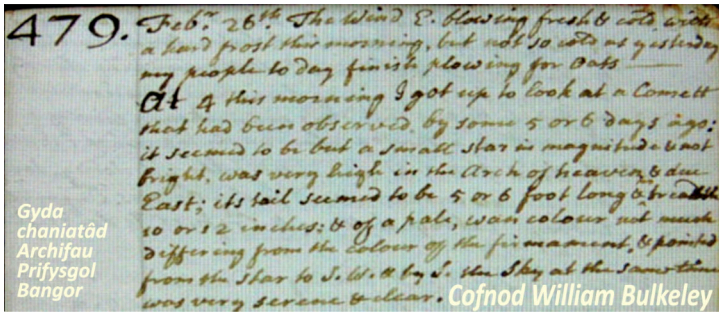 479.
Febr. 26th. The Wind E. blowing fresh & cold, with
a hard frost this morning, but not so cold as yesterday
my people to day finish plowing for Oats
At 4 this morning I got up to look at a Comett
that had been observed by some 5 or 6 days ago;
it seemed to be but a small star in magnitude & not
bright, was very high in the Arch of heaven & due
East; its tail seemed to be 5 or 6 foot long &
10 or 12 inches; & of a pale, wan colour not much
differing from the colour of the firmament, & pointed
from the star to S. W. & by S. the Sky at the same time
was very serene & clear.
Gyda
chaniatâd
Archifau
Prifysgol
Bangor
Cofnod William Bulkeley